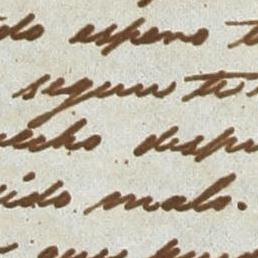 do espero
segun
echo despu
ido malo.